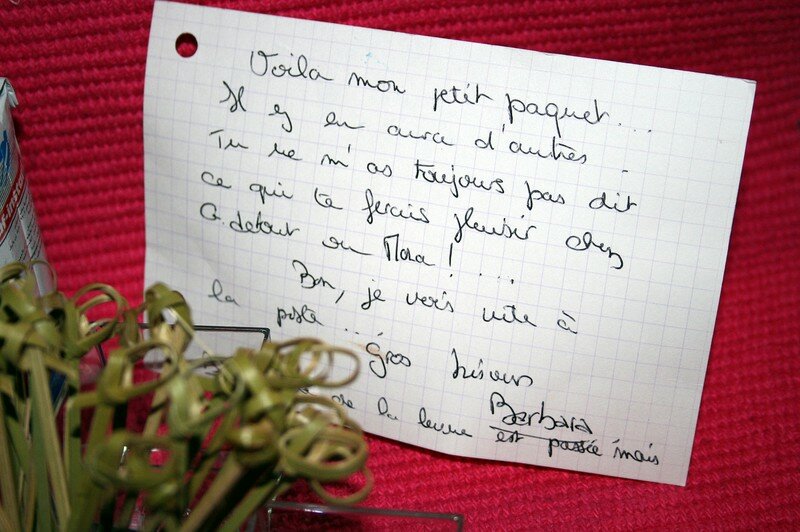 Voila mon petit paquet...
Il y en aura d'autres.
Tu ne m'as toujours pas dit
ce qui te ferais plaisir chez
G. detout ou Mora ! ...
Bon, je vais vite à
la poste... Gros bisous
Barbara
de la levure est passée mais